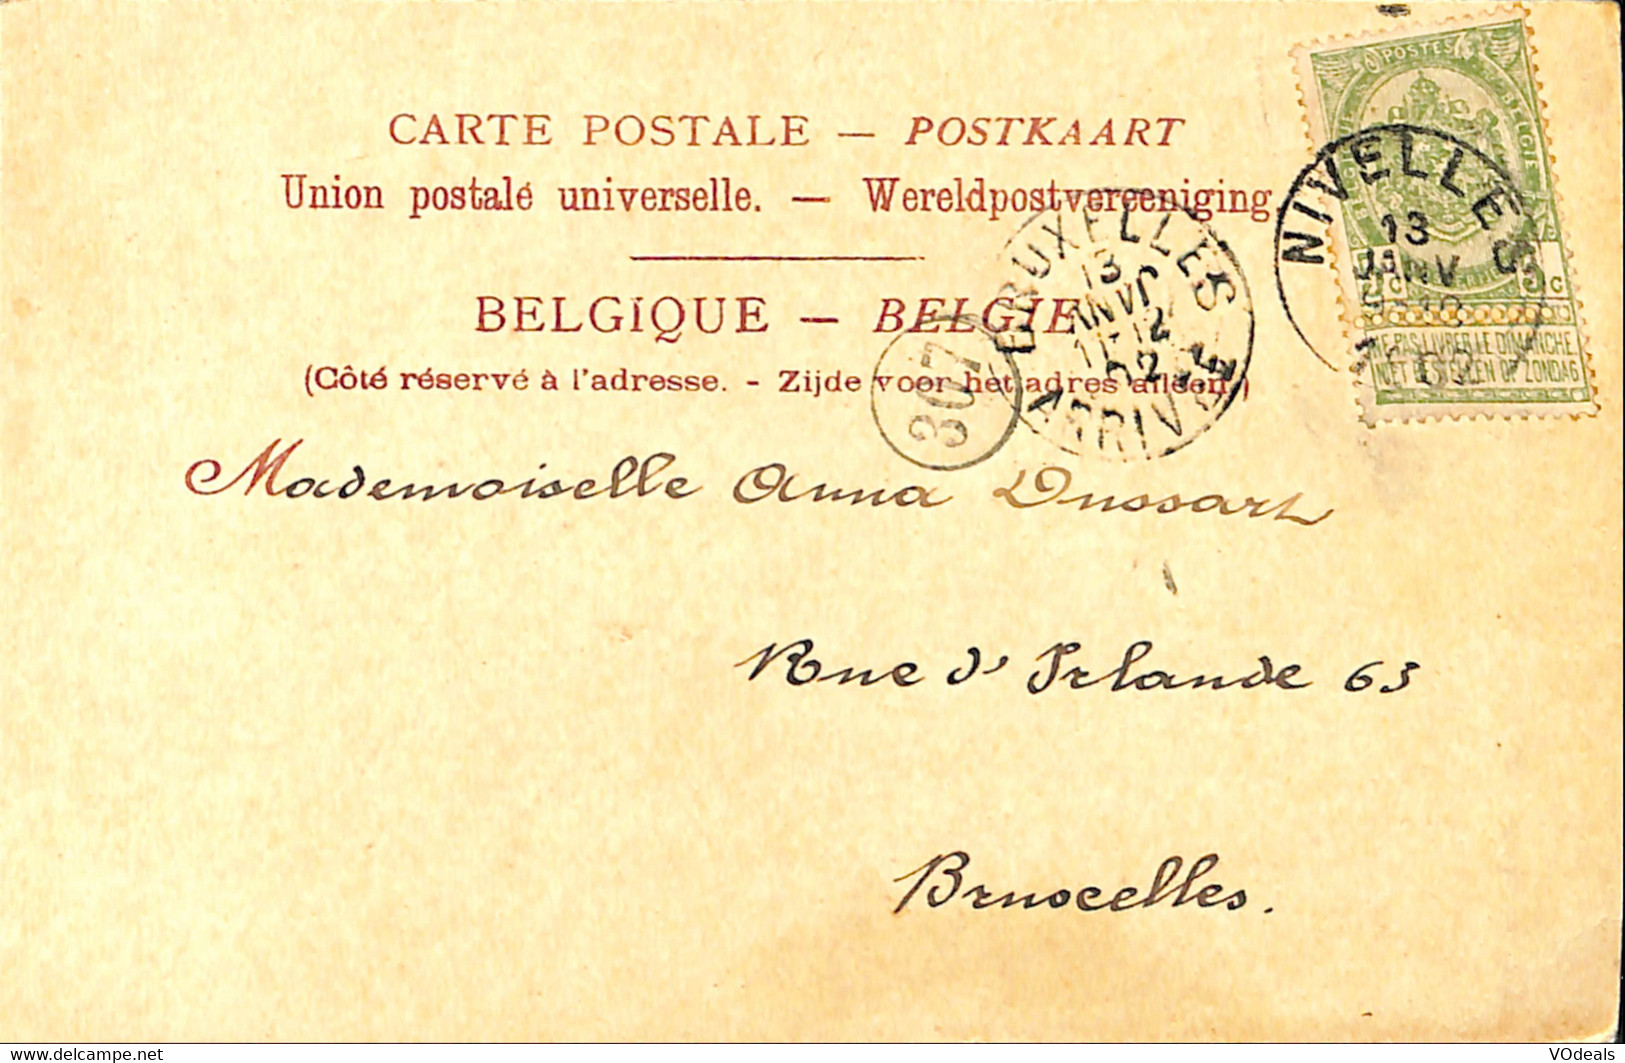 CARTE POSTALE — POSTKAART
Union postale universelle. — Wereldpostvereeniging.
BELGIQUE — BELGIE
(Côté réservé à l'adresse. - Zijde voor het adres alleen.)
POSTES
BELGIE
5 c
NE PAS LIVRER LE DIMANCHE
NIET BESTELLEN OP ZONDAG
NIVELLES
13
JANV
BRUXELLES
13
JANV
11-12
02
ARRIVÉE
307
Mademoiselle Anna Dussart
Rue d'Irlande 63
Bruxelles.
https://www.delcampe.net
VOdeals